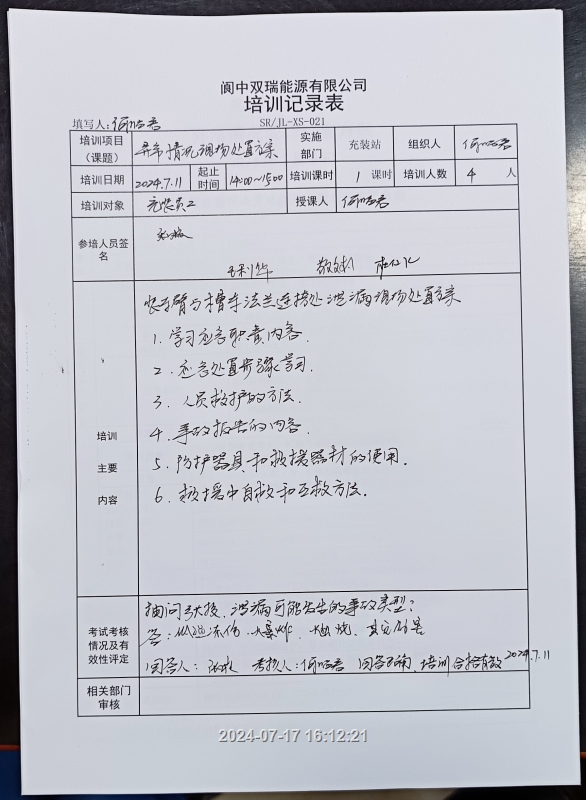 阆中双瑞能源有限公司
培训记录表
SR/JL-XS-021
填写人:
培训项目（课题） 异常情况现场处置方案 实施部门 充装站 组织人
培训日期 2024.7.11 起止时间 14:00~15:00 培训课时 1 课时 培训人数 4 人
培训对象 充装员工 授课人
参培人员签名
培训主要内容
装车臂与槽车法兰连接处泄漏现场处置方案
1. 学习应急职责内容.
2. 应急处置步骤学习.
3. 人员救护的方法.
4. 事故报告的内容.
5. 防护器具和救援器材的使用.
6. 救援中自救和互救方法.
考试考核情况及有效性评定
抽问 泄漏可能发生的事故类型?
答: 冻伤、爆炸、燃烧、
回答人: 考核人: 回答正确, 培训合格有效 2024.7.11
相关部门审核
2024-07-17 16:12:21